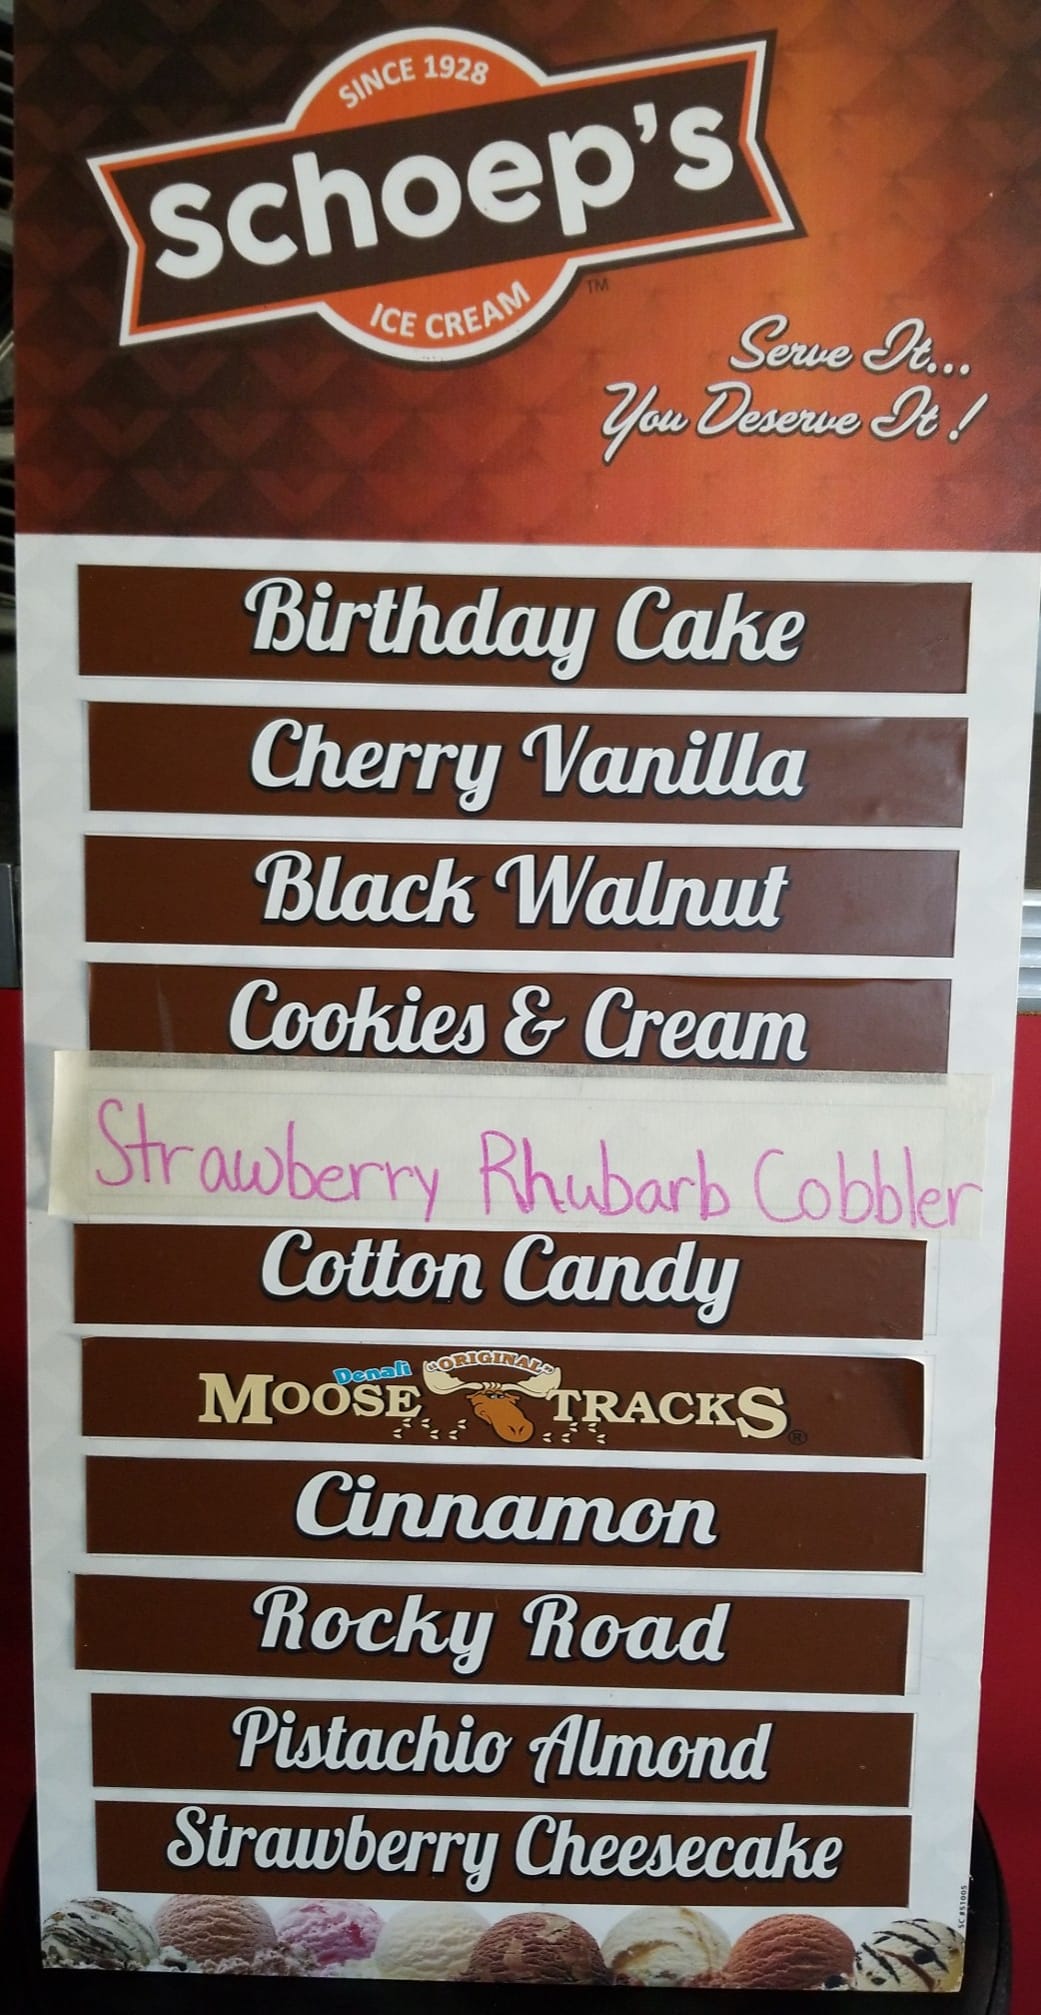 SINCE 1928
Schoep's
ICE CREAM
TM
Serve It...
You Deserve It!
Birthday Cake
Cherry Vanilla
Black Walnut
Cookies & Cream
Strawberry Rhubarb Cobbler
Cotton Candy
Denali "ORIGINAL"
MOOSE TRACKS®
Cinnamon
Rocky Road
Pistachio Almond
Strawberry Cheesecake
SC #51005